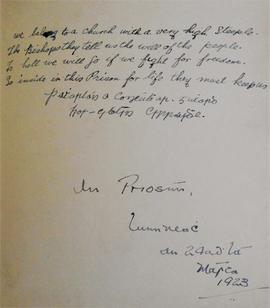 we belong to a church with a very high steeple.
The Bishops they tell us the will of the people.
To hell we will go if we fight for freedom.
So inside in this Prison for life they must keep us
An Príosún,
Luimneac
an 24ad lá
Márta
1923